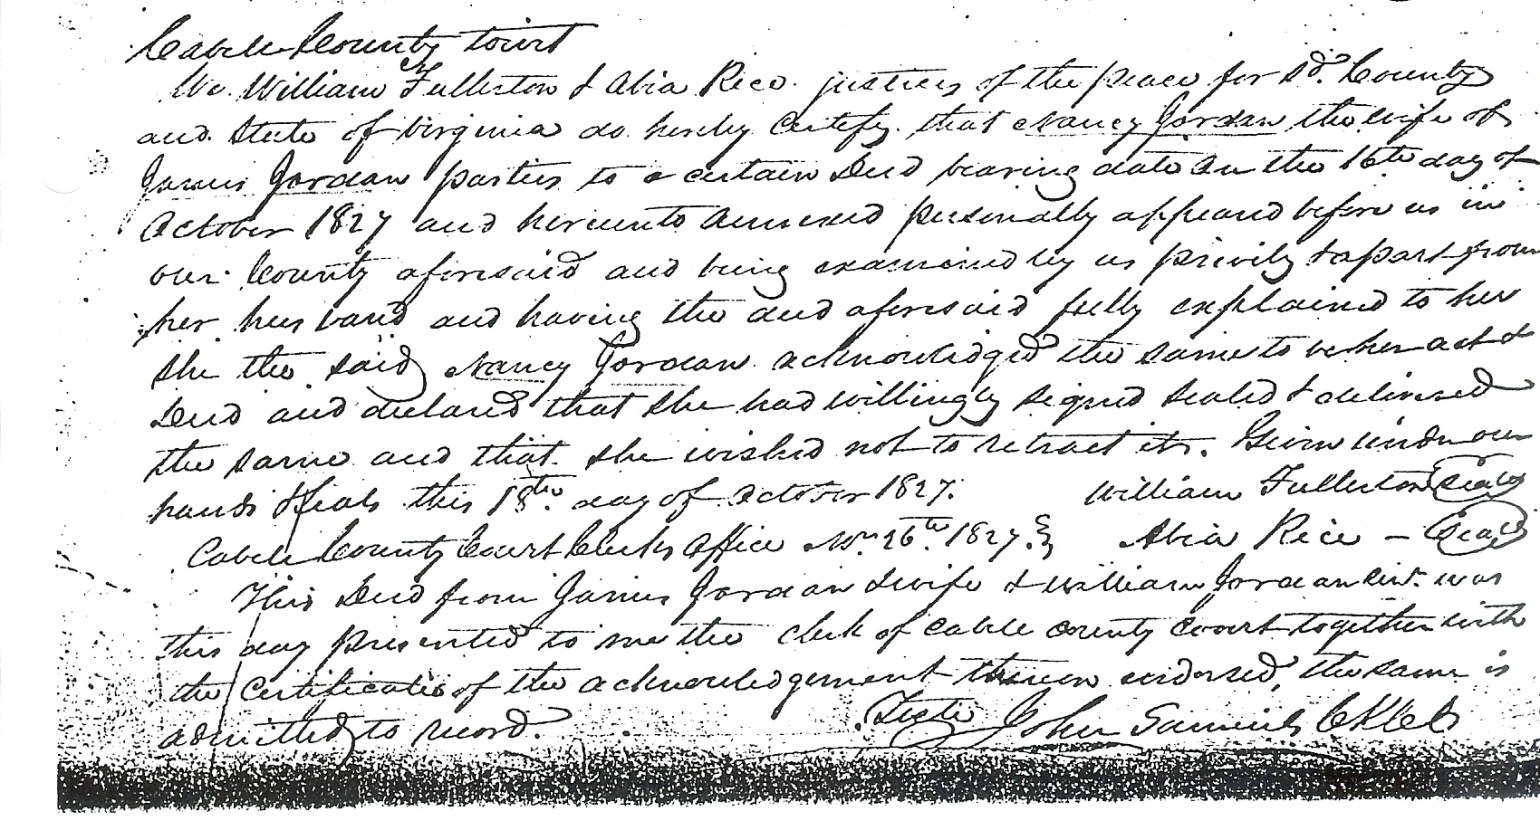 Cabell County towit
We William Fullerton & Abia Rice justices of the peace for sd. County
and State of Virginia do hereby Certify that Nancy Jordan the wife of
James Jordan parties to a certain Deed bearing date on the 16th day of
October 1827 and hereunto annexed personally appeared before us in
our County aforesaid and being examined by us privily & apart from
her husband and having the deed aforesaid fully explained to her
she the said Nancy Jordan acknowledged the same to be her act &
Deed and declared that she had willingly signed sealed & delivered
the same and that she wished not to retract it. Given under our
hands & seals this 18th day of October 1827. William Fullerton Seal
Cabell County Court Clerks Office 26th 1827. Abia Rice – Seal
This Deed from James Jordan & wife & William Jordan was
this day presented to me the clerk of Cabell county court together with
the Certificate of the acknowledgement thereon endorsed, the same is
admitted to record. Teste John Samuels